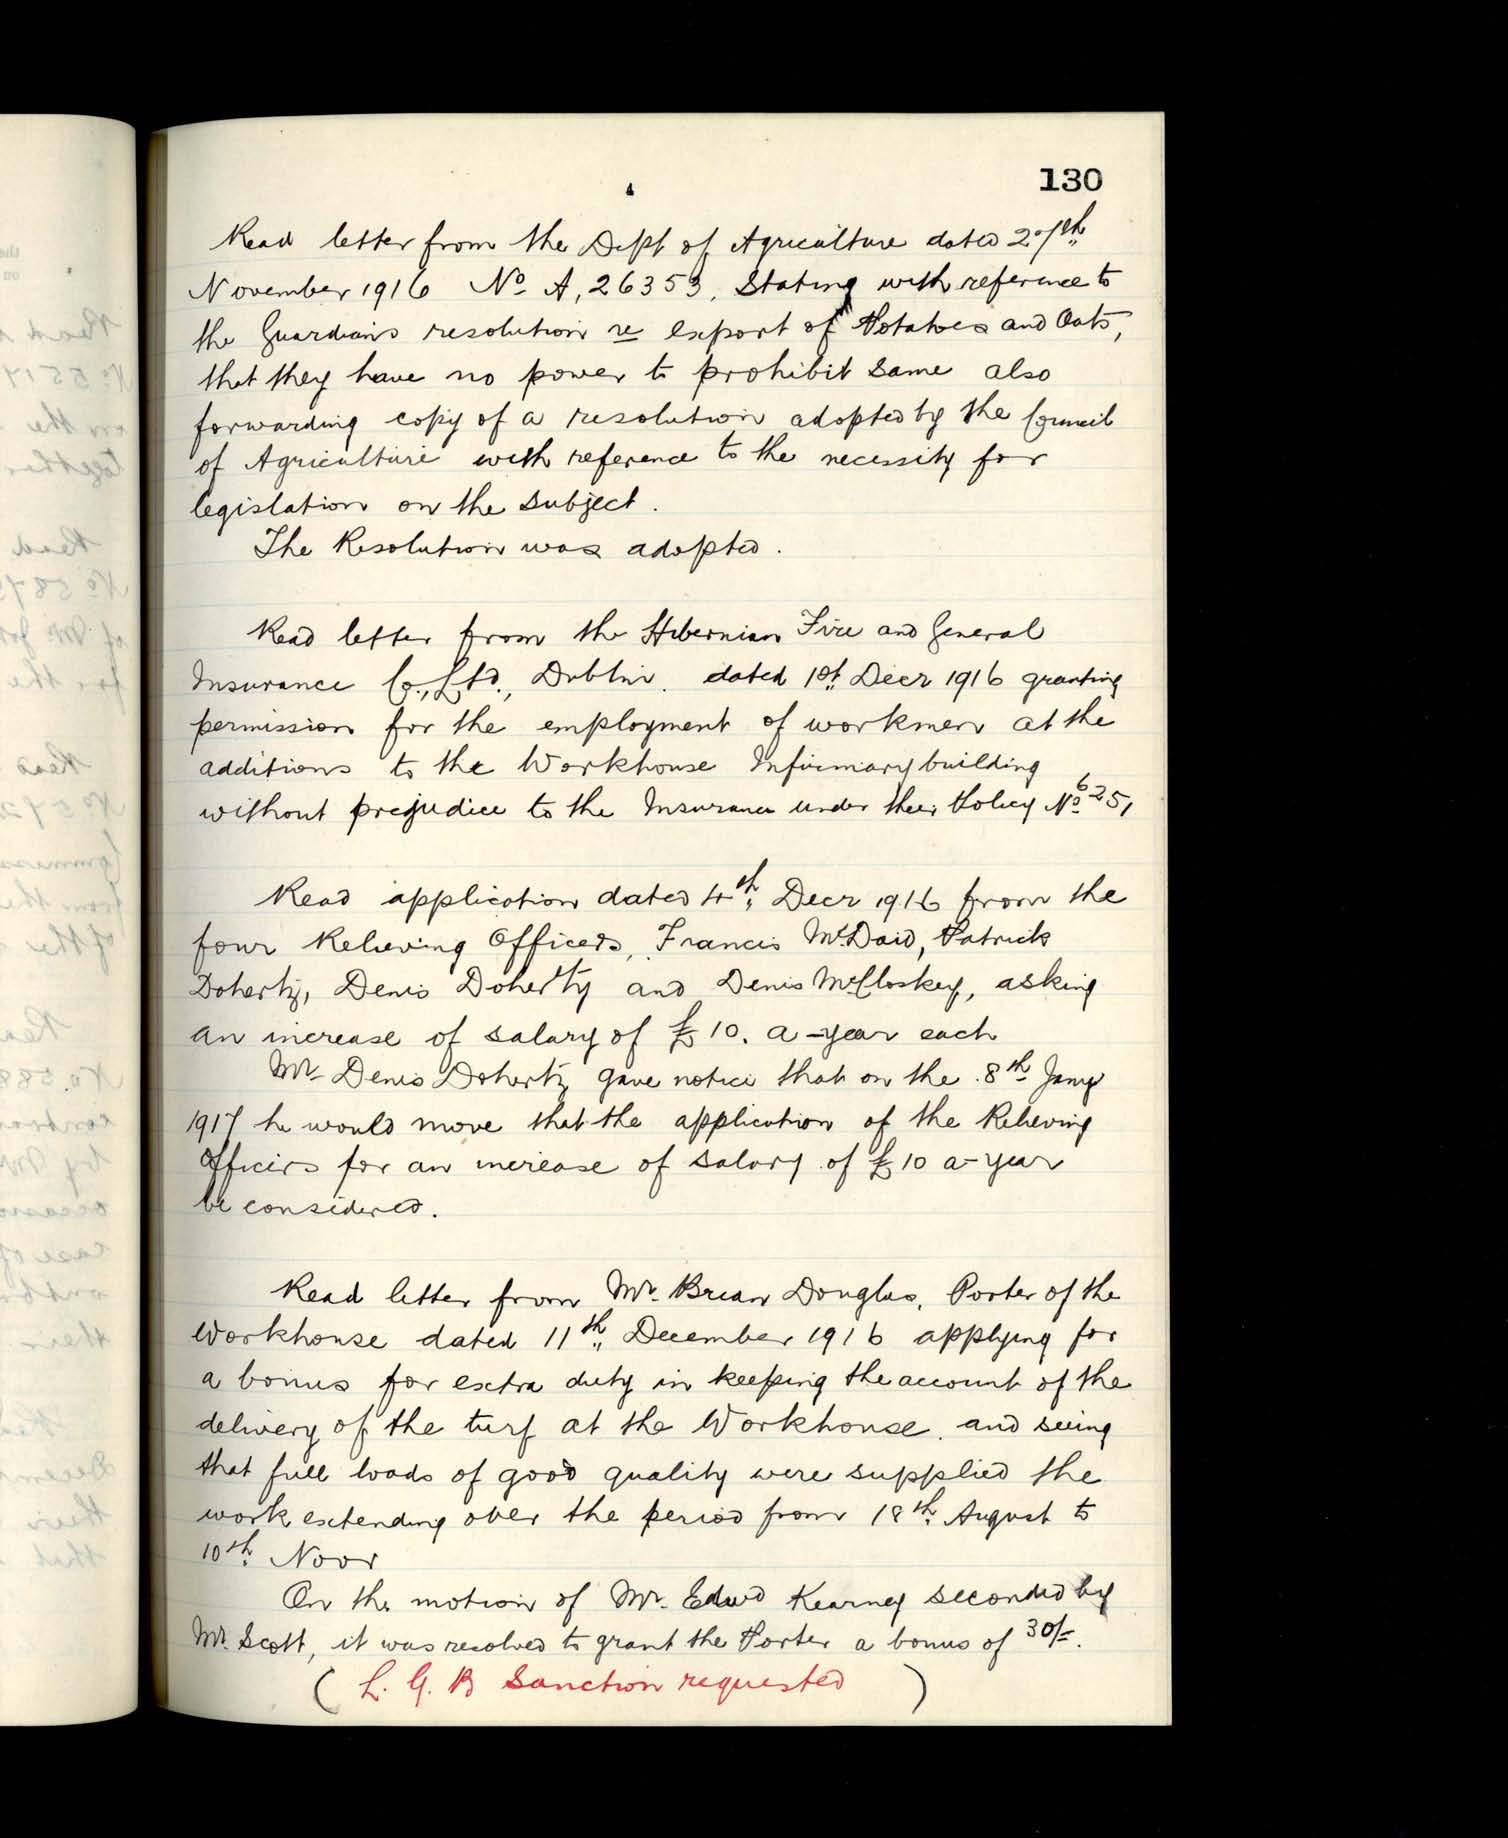 130
Read letter from the Dept of Agriculture dated 27th
November 1916 No A, 26353, Stating with reference to
the Guardians resolution re export of Potatoes and Oats,
that they have no power to prohibit same also
forwarding copy of a resolution adopted by the Council
of Agriculture with reference to the necessity for
legislation on the subject.
The Resolution was adopted.
Read letter from the Hibernian Fire and General
Insurance Co., Ltd., Dublin. dated 1st Decr 1916 granting
permission for the employment of workmen at the
additions to the Workhouse Infirmary building
without prejudice to the Insurance under their Policy No 6251
Read application dated 4th Decr 1916 from the
four Relieving Officers, Francis McDaid, Patrick
Doherty, Denis Doherty and Denis McCloskey, asking
an increase of salary of £10. a-year each
Mr Denis Doherty gave notice that on the 8th Jany
1917 he would move that the application of the Relieving
Officers for an increase of salary of £10 a-year
be considered.
Read letter from Mr. Brian Douglas, Porter of the
Workhouse dated 11th December 1916 applying for
a bonus for extra duty in keeping the account of the
delivery of the turf at the Workhouse. and seeing
that full loads of good quality were supplied the
work extending over the period from 18th August to
10th Novr
On the motion of Mr. Edwd Kearney seconded by
Mr. Scott, it was resolved to grant the Porter a bonus of 30/=.
( L. G. B Sanction requested )